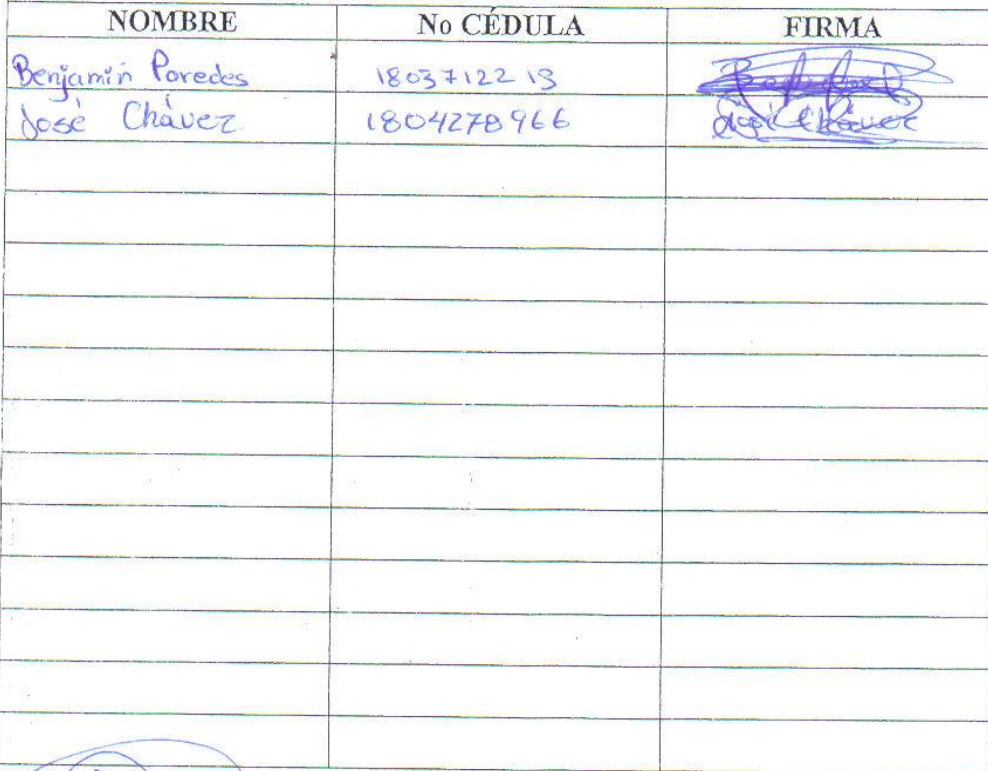 NOMBRE No CÉDULA FIRMA
Benjamín Paredes 1803712213
José Chávez 1804278966 José Chávez